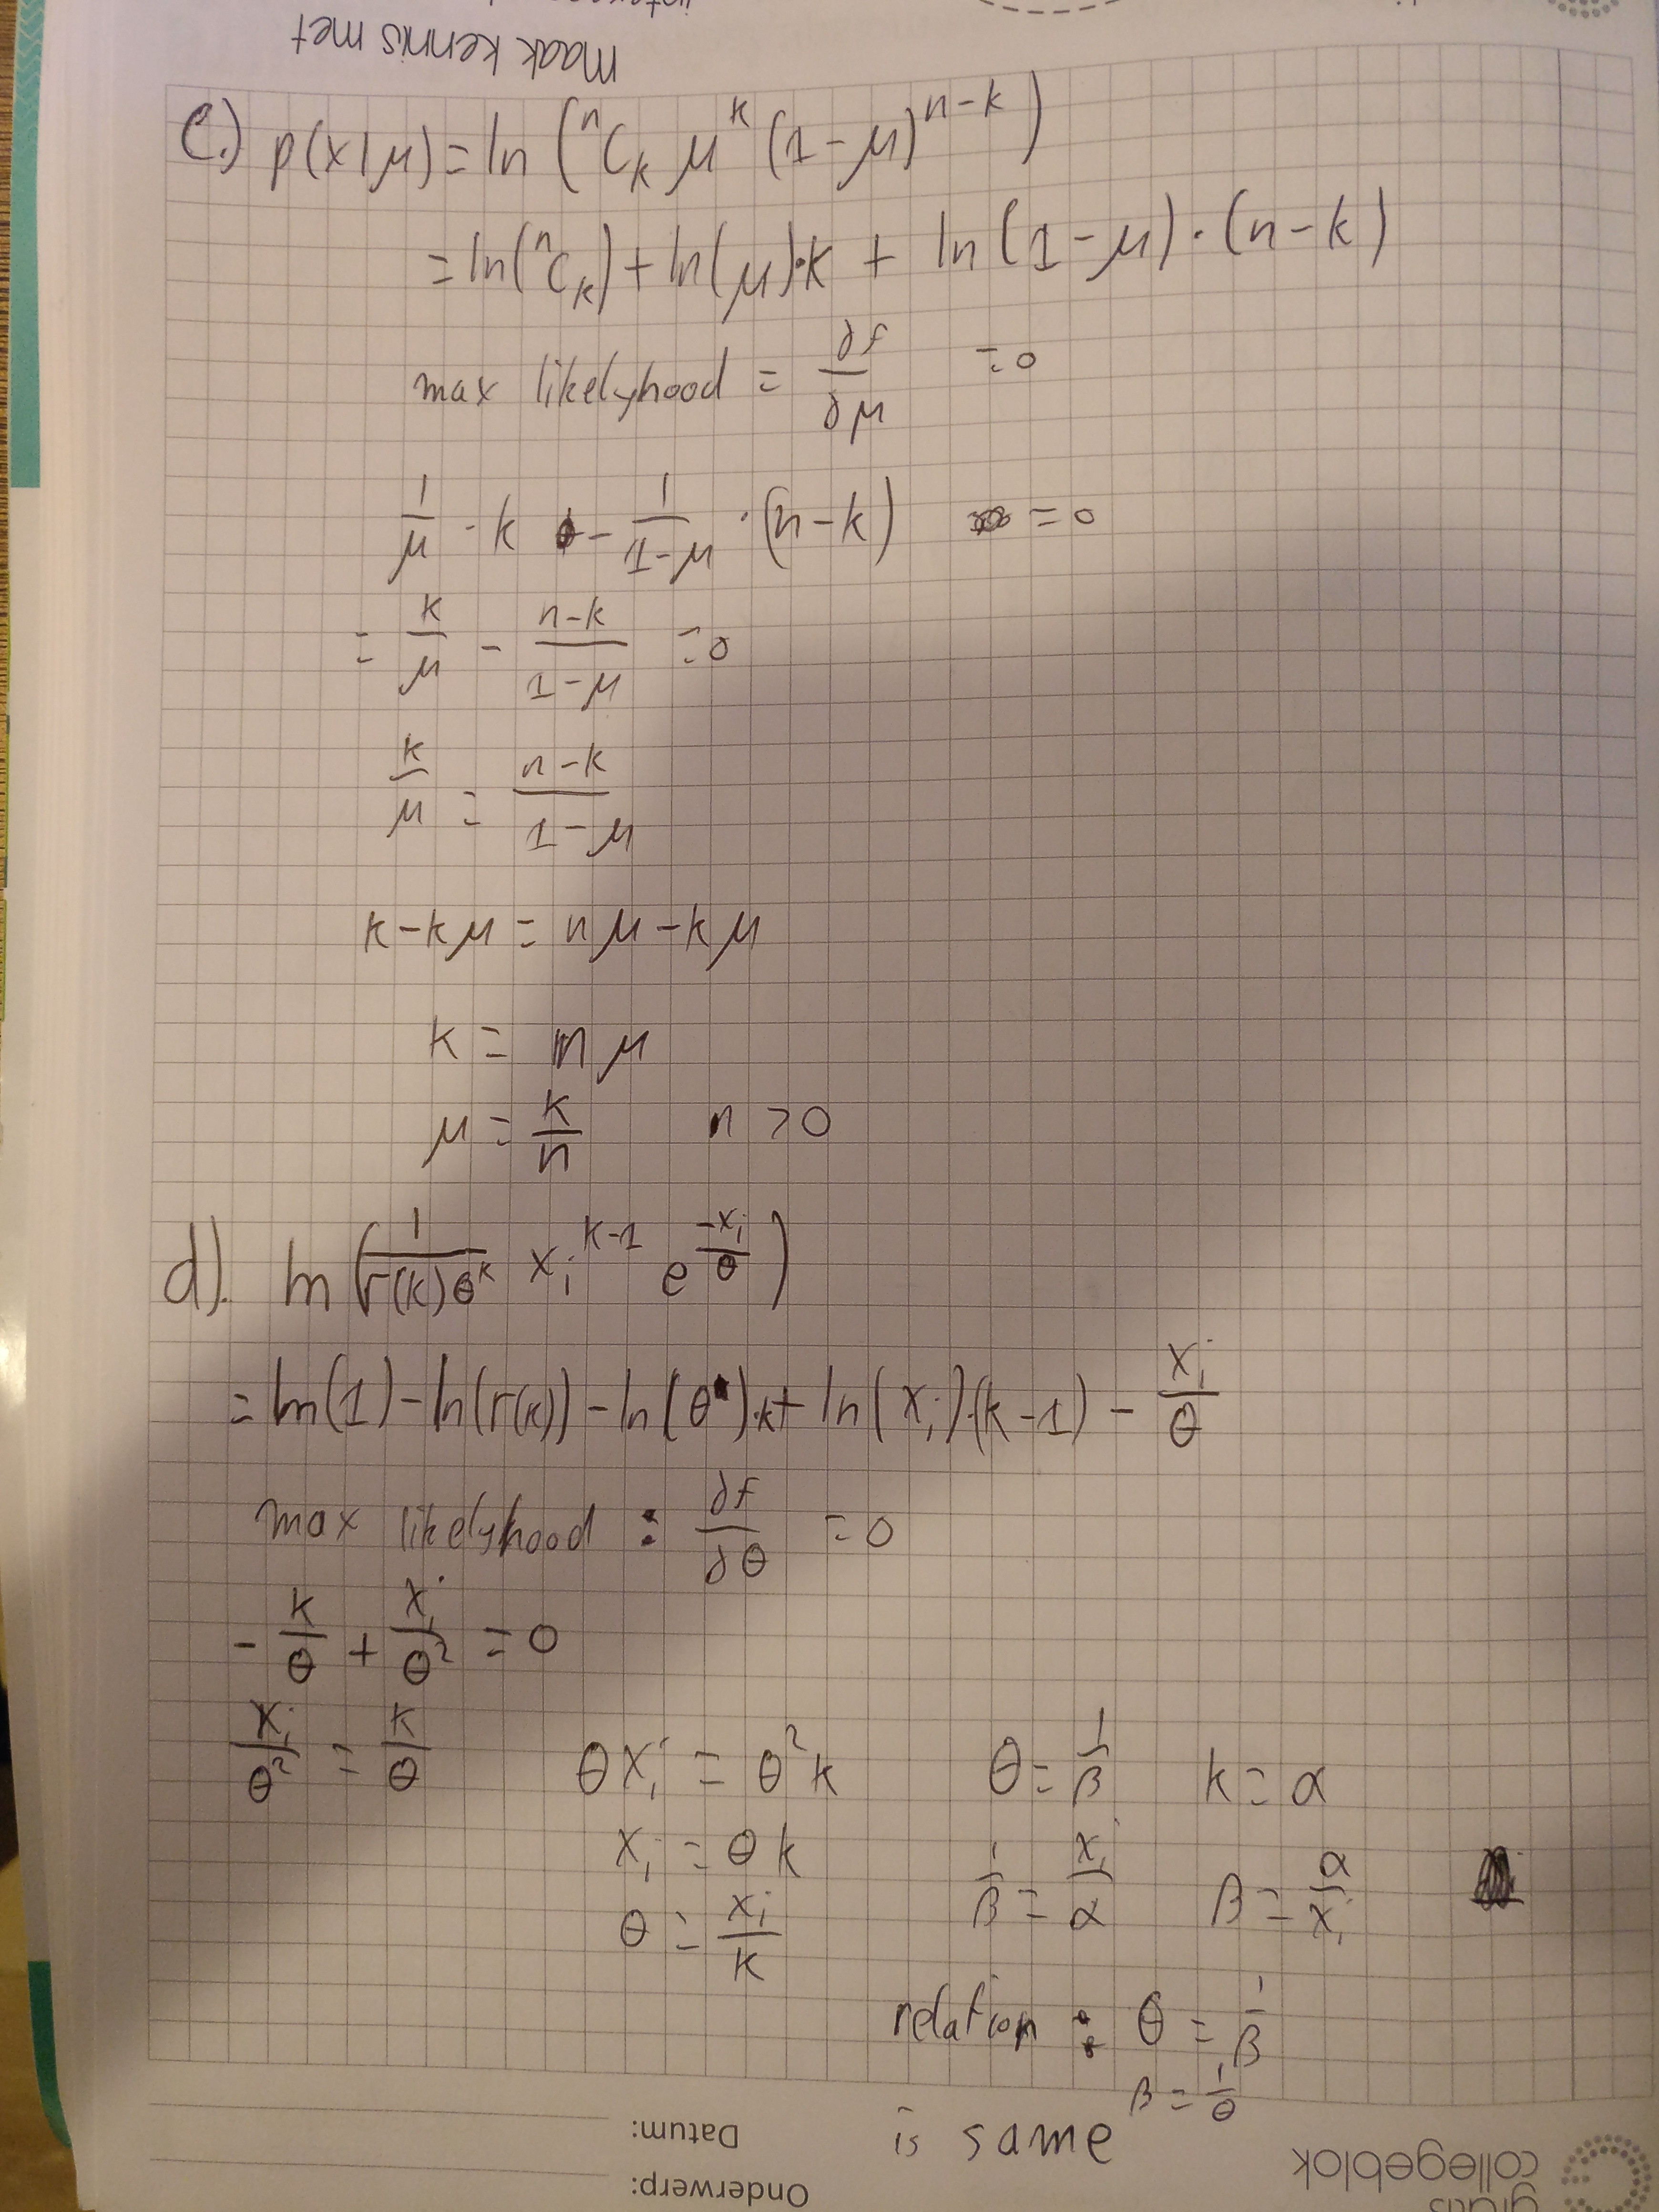 Maak kennis met
c.) p(x|μ) = ln (ⁿCₖ μᵏ (1-μ)ⁿ⁻ᵏ)
= ln(ⁿCₖ) + ln(μ)·k + ln(1-μ)·(n-k)
max likelyhood = ∂f/∂μ =0
1/μ · k - 1/(1-μ) · (n-k) = 0
= k/μ - (n-k)/(1-μ) =0
k/μ = (n-k)/(1-μ)
k-kμ = nμ-kμ
k = nμ
μ = k/n n > 0
d). ln(1/(Γ(k)θᵏ) xᵢᵏ⁻¹ e^(-xᵢ/θ))
= ln(1) - ln(Γ(k)) - ln(θ)·k + ln(xᵢ)·(k-1) - xᵢ/θ
max likelyhood : ∂f/∂θ =0
- k/θ + xᵢ/θ² = 0
xᵢ/θ² = k/θ θxᵢ = θ²k θ = 1/β k = α
xᵢ = θk 1/β = xᵢ/α β = α/xᵢ
θ = xᵢ/k
relation : θ = 1/β
β = 1/θ
is same
Datum:
Onderwerp:
gratis
collegeblok